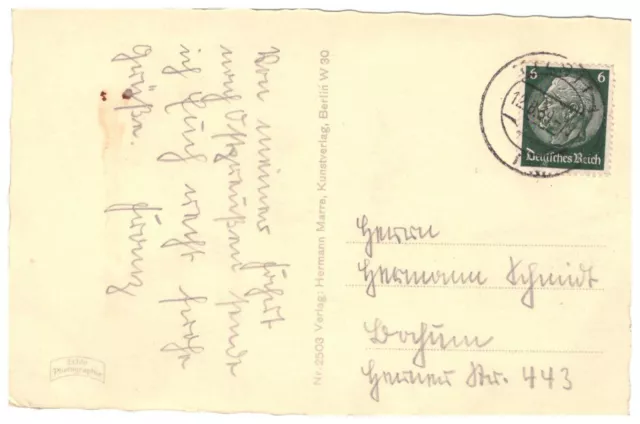 Von meiner Fahrt
nach Ostpreußen sende
ich Euch recht frohe
Grüße.
Franz
Nr. 2503 Verlag: Hermann Marra, Kunstverlag, Berlin W 30
5 6
Deutsches Reich
Herrn
Hermann Schmidt
Bochum
Herner Str. 443
Echte
Photographie